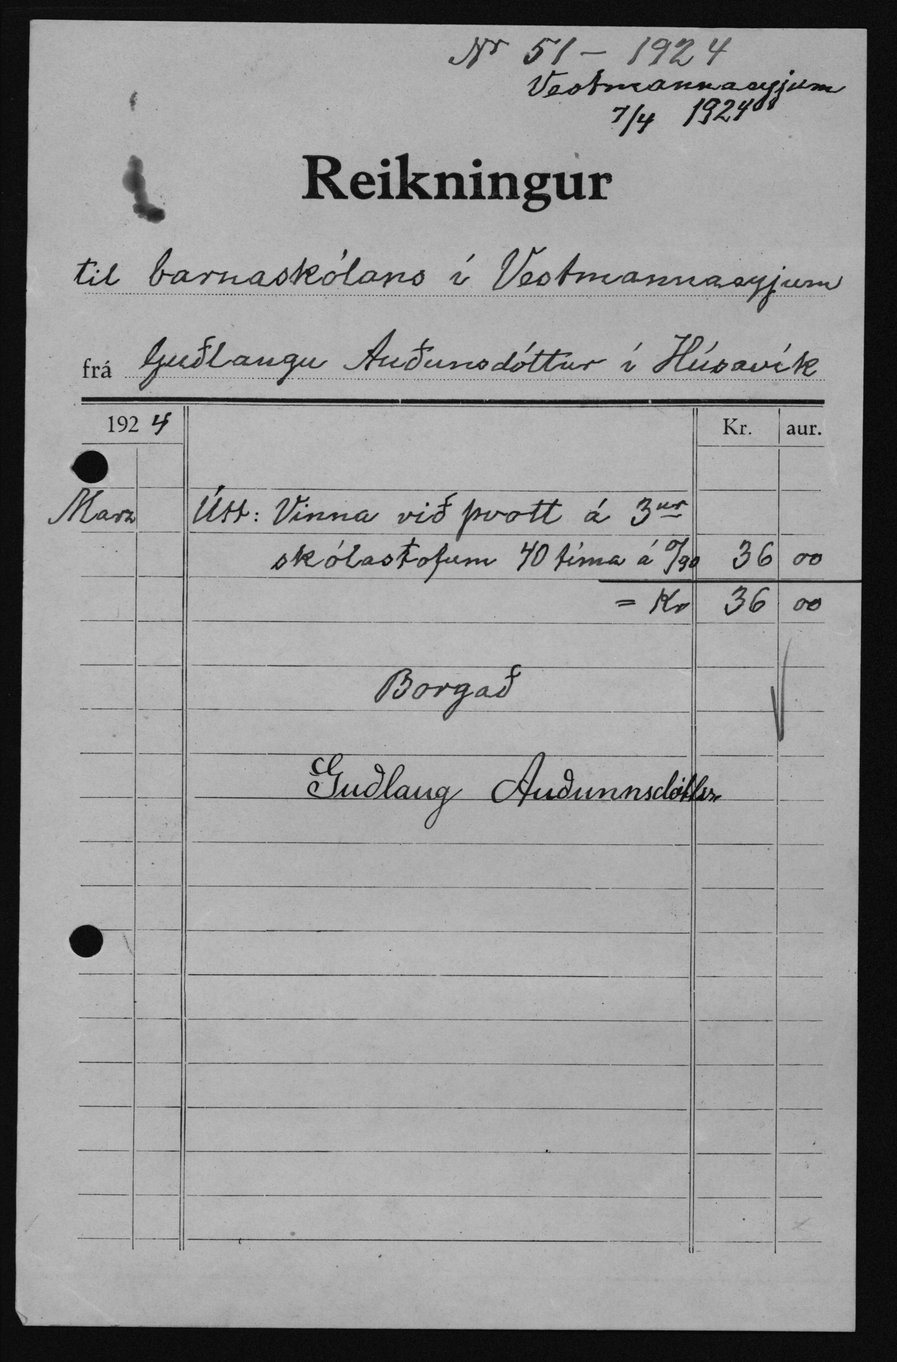 Nr 51 - 1924
Vestmannaeyjum
7/4 1924
Reikningur
til barnaskólans í Vestmannaeyjum
frá Guðlaugu Auðunsdóttur í Húsavík
1924 Kr. aur.
Marz Útt: Vinna við þvott á 3ur
skólastofum 40 tíma á 0/90 36 00
= Kr 36 00
Borgað
Guðlaug Auðunnsdóttir